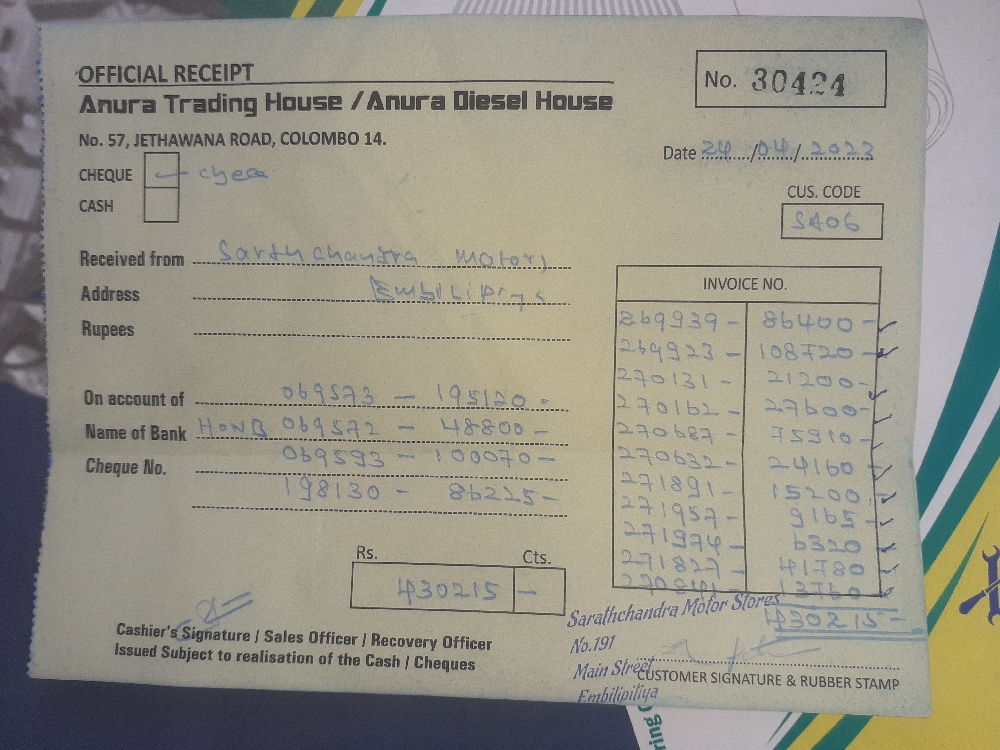 OFFICIAL RECEIPT
No. 30424
Anura Trading House / Anura Diesel House
No. 57, JETHAWANA ROAD, COLOMBO 14.
Date 24/04/2023
CHEQUE
CASH
CUS. CODE
SA06
Received from Sarthchandra Motors
Address Embilipiya
Rupees
INVOICE NO.
269939 - 86400 -
269923 - 108720 -
270131 - 21200 -
270162 - 27600 -
270687 - 75910 -
270632 - 24160 -
271891 - 15200 -
271957 - 9165 -
271974 - 6320
271827 - 41780 -
13760 -
430215 -
On account of 069573 - 195120 -
Name of Bank HONB 069572 - 48800 -
Cheque No. 069593 - 100070 -
198130 - 86225 -
Rs. Cts.
430215 -
Cashier's Signature / Sales Officer / Recovery Officer
Issued Subject to realisation of the Cash / Cheques
Sarathchandra Motor Stores
No.191
Main Street
Embilipitiya
CUSTOMER SIGNATURE & RUBBER STAMP